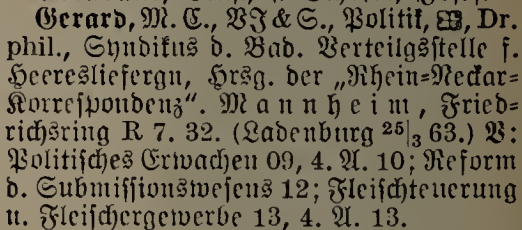 Gerard, M. E., VJ & S., Politik, Dr.
phil., Syndikus d. Bad. Verteilgsstelle f.
Heereslieferg​n, Hrsg. der „Rhein=Neckar=
Korrespondenz“. Mannheim, Fried=
richsring R 7. 32. (Ladenburg 25|3 63.) V:
Politisches Erwachen 09, 4. A. 10; Reform
d. Submissionswesens 12; Fleischteuerung
u. Fleischergewerbe 13, 4. A. 13.